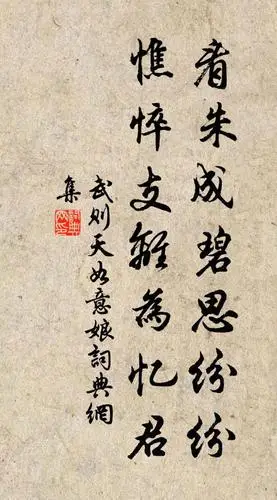 看朱成碧思纷纷
憔悴支離為忆君
武则天如意娘詞典網
集